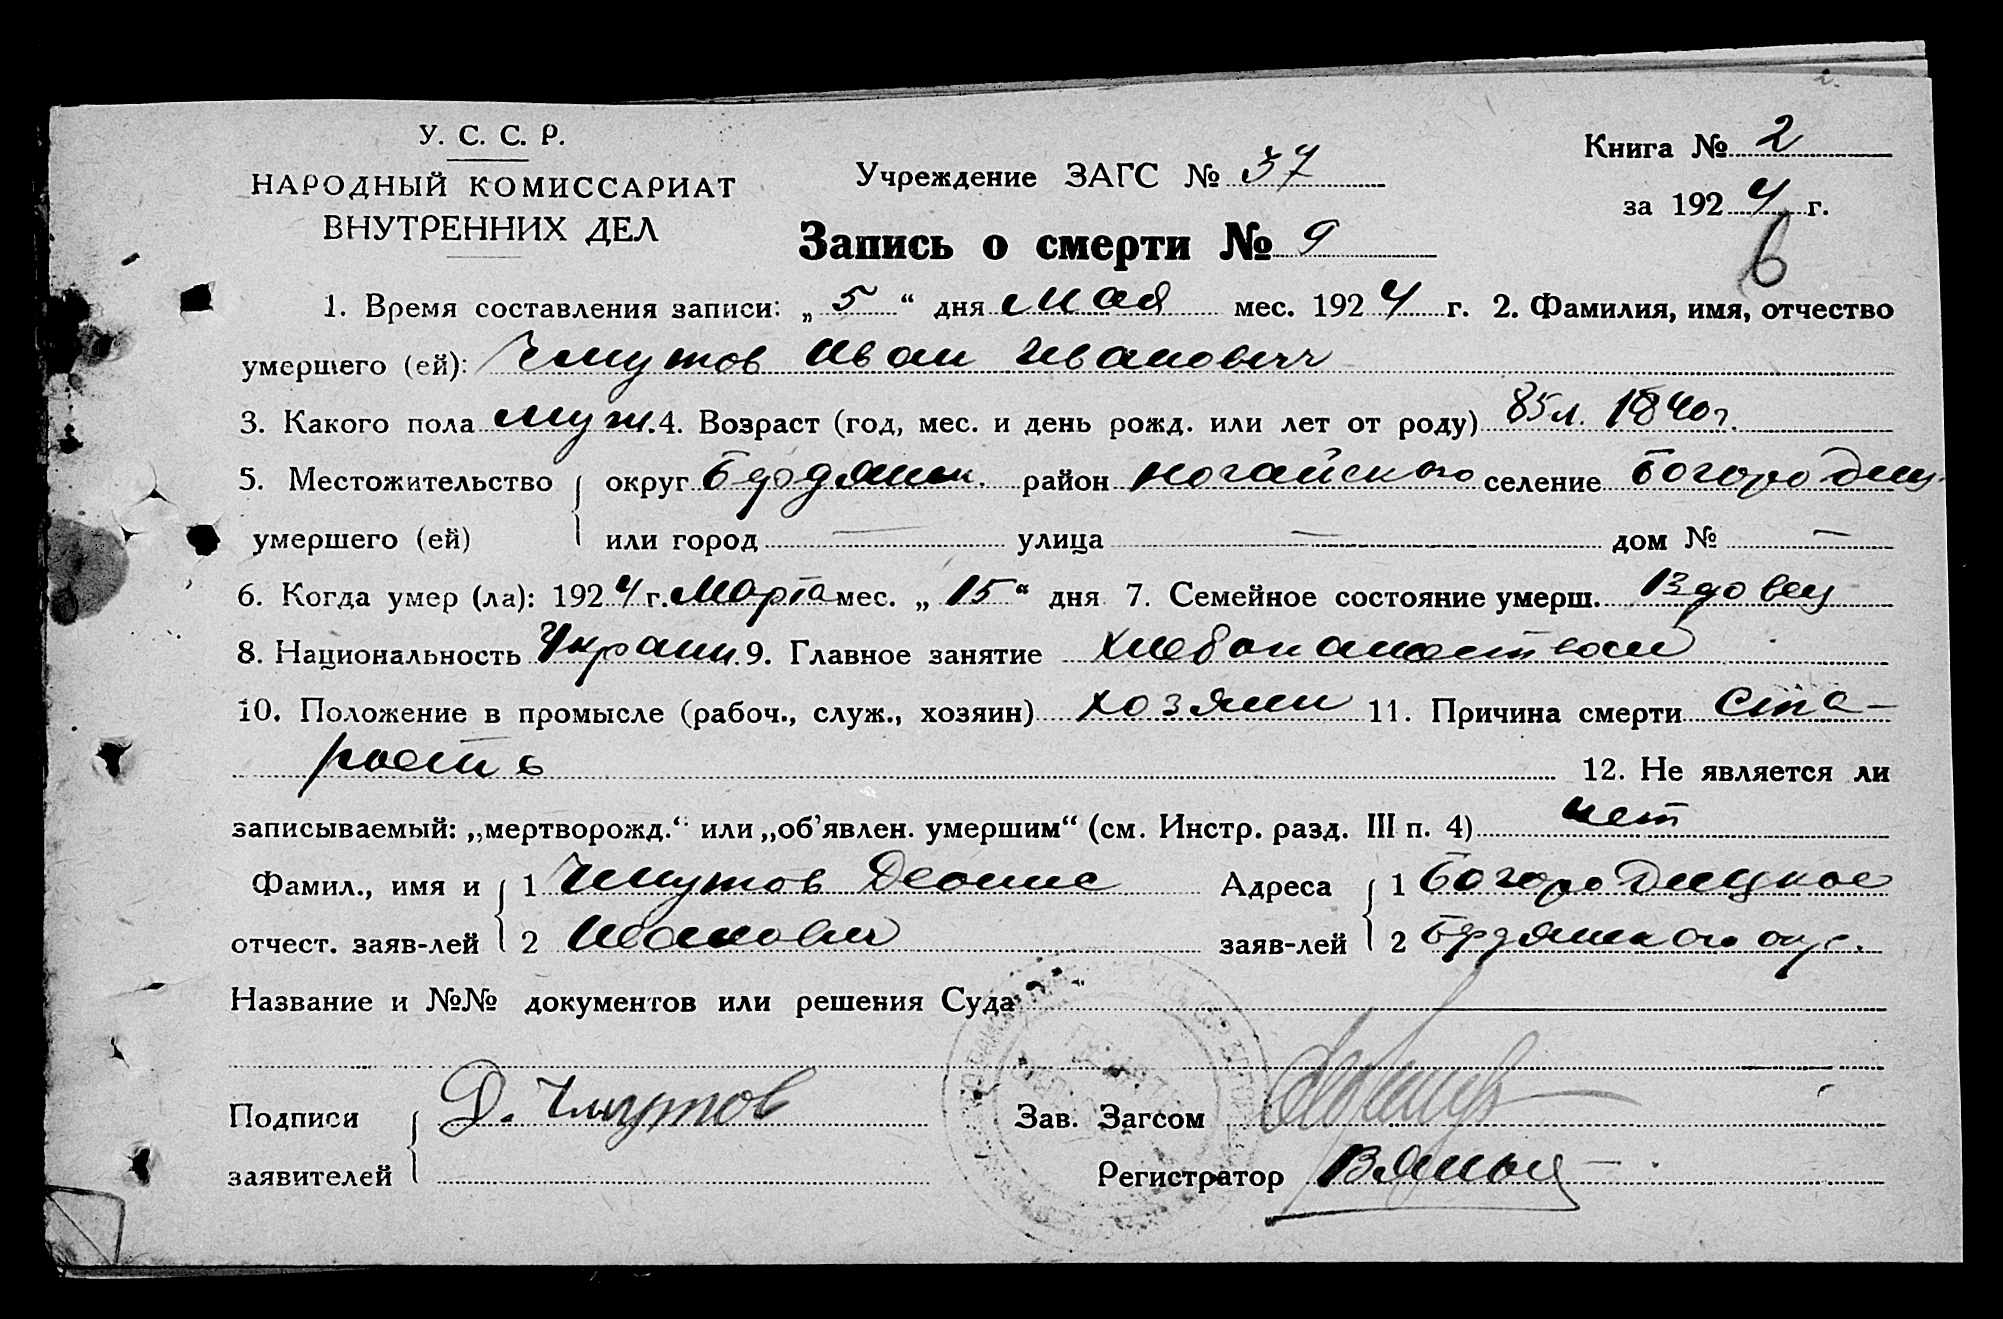 У. С. С. Р.
НАРОДНЫЙ КОМИССАРИАТ
ВНУТРЕННИХ ДЕЛ
Учреждение ЗАГС № 37
Книга № 2
за 1924 г.
6
Запись о смерти № 9
1. Время составления записи: „5“ дня Мая мес. 1924 г. 2. Фамилия, имя, отчество
умершего (ей): Чмутов Иван Иванович
3. Какого пола муж. 4. Возраст (год, мес. и день рожд. или лет от роду) 85 л. 1840 г.
5. Местожительство округ Бердянск. район Ногайского селение Богородиц.
умершего (ей) или город — улица — дом № —
6. Когда умер (ла): 1924 г. Марта мес. „15“ дня 7. Семейное состояние умерш. Вдовец
8. Национальность Украин. 9. Главное занятие хлебопашеством
10. Положение в промысле (рабоч., служ., хозяин) хозяин 11. Причина смерти Ста-
рость 12. Не является ли
записываемый: „мертворожд.“ или „об’явлен. умершим“ (см. Инстр. разд. III п. 4) нет
Фамил., имя и 1 Чмутов Деонис Адреса 1 Богородицкое
отчест. заяв-лей 2 Иванович заяв-лей 2 Бердянского окр.
Название и №№ документов или решения Суда
Подписи Д. Чмутов Зав. Загсом
заявителей Регистратор